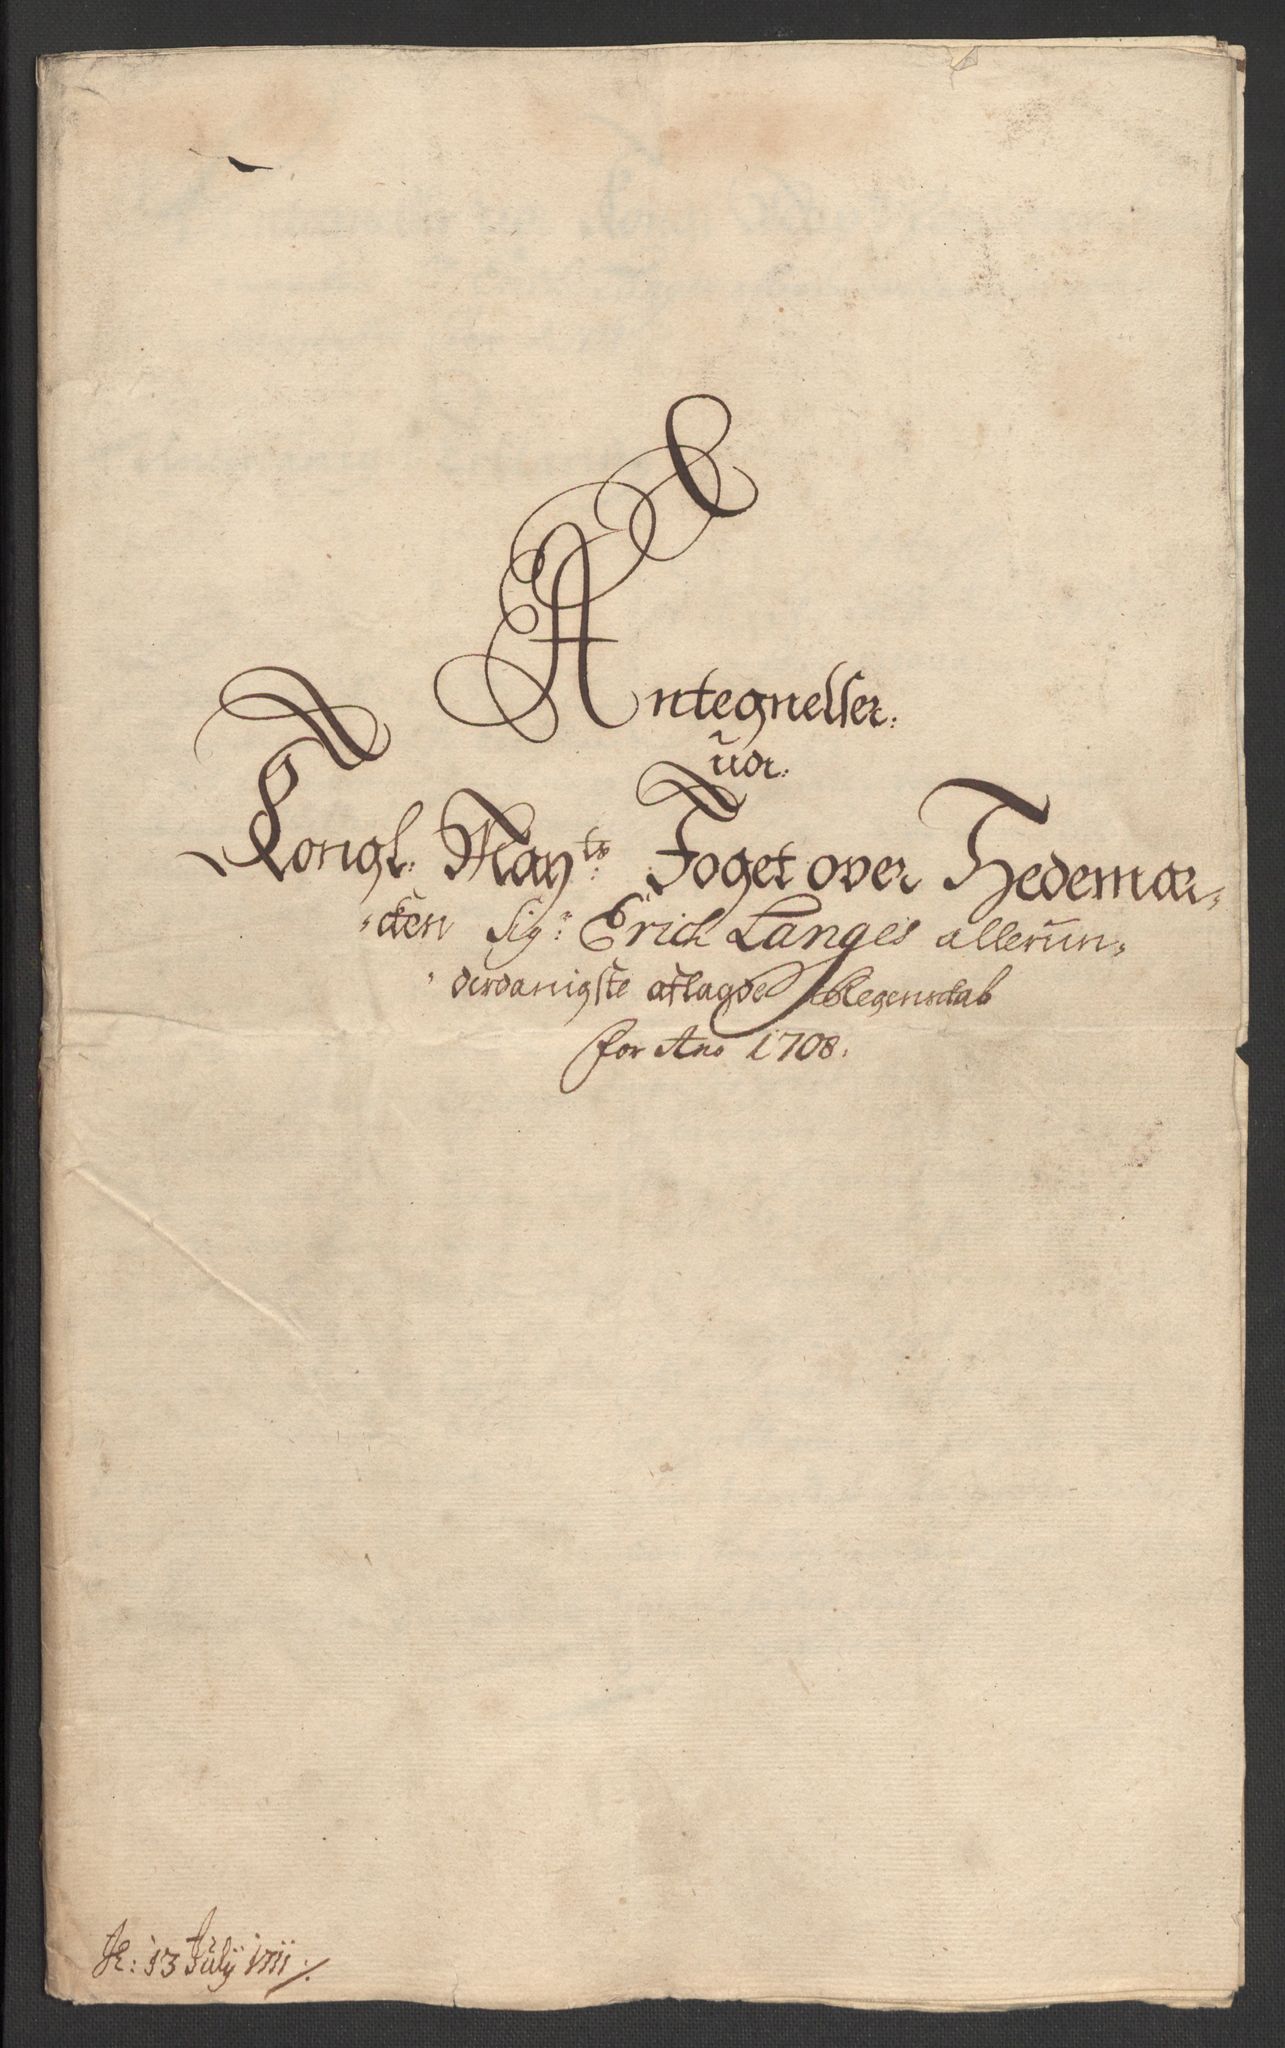 Antegnelser.
ved.
Kongl. Mayts. Foget over Hedemar-
cken Sigr: Erich Langes allerun-
derdanigste aflagde Regenskab
for Ano 1708.
R: 13 July 1711